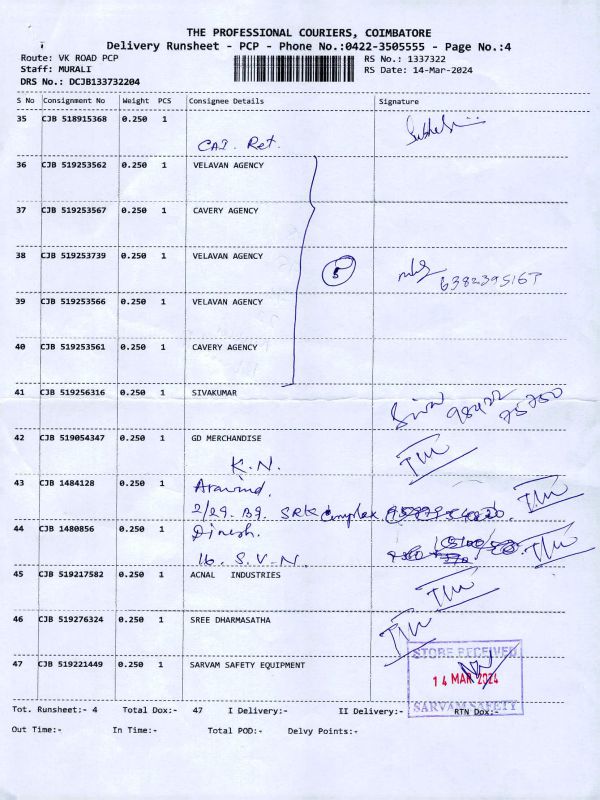 THE PROFESSIONAL COURIERS, COIMBATORE
Delivery Runsheet - PCP - Phone No.:0422-3505555 - Page No.:4
Route: VK ROAD PCP
Staff: MURALI
DRS No.: DCJB133732204
RS No.: 1337322
RS Date: 14-Mar-2024
S No Consignment No Weight PCS Consignee Details Signature
35 CJB 518915368 0.250 1
Ret.
36 CJB 519253562 0.250 1 VELAVAN AGENCY
37 CJB 519253567 0.250 1 CAVERY AGENCY
38 CJB 519253739 0.250 1 VELAVAN AGENCY
5
6382395167
39 CJB 519253566 0.250 1 VELAVAN AGENCY
40 CJB 519253561 0.250 1 CAVERY AGENCY
41 CJB 519256316 0.250 1 SIVAKUMAR
Siva 98422 75750
42 CJB 519054347 0.250 1 GD MERCHANDISE
K.N.
43 CJB 1484128 0.250 1 Aravind.
2/29. B9. SRK Complex
44 CJB 1480856 0.250 1 Dinesh.
16. S.V.N.
45 CJB 519217582 0.250 1 ACNAL INDUSTRIES
46 CJB 519276324 0.250 1 SREE DHARMASATHA
47 CJB 519221449 0.250 1 SARVAM SAFETY EQUIPMENT
STORE RECEIVED
14 MAR 2024
SARVAM SAFETY
Tot. Runsheet:- 4 Total Dox:- 47 I Delivery:- II Delivery:- RTN Dox:-
Out Time:- In Time:- Total POD:- Delvy Points:-